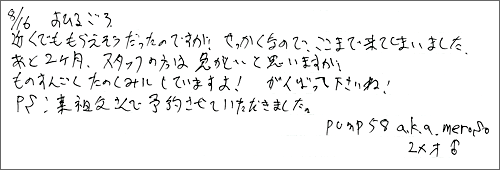 8/16 おひるごろ
近くでももらえそうだったのですが、せっかくなので、ここまで来てしまいました。
あと2ヶ月、スタッフの方は忙しいと思いますが、
ものすんごくたのしみにしていますよ! がんばって下さいね!
PS:秉祖父さんで予約させていただきました。
pump58 a.k.a. meroso
2メオ♂